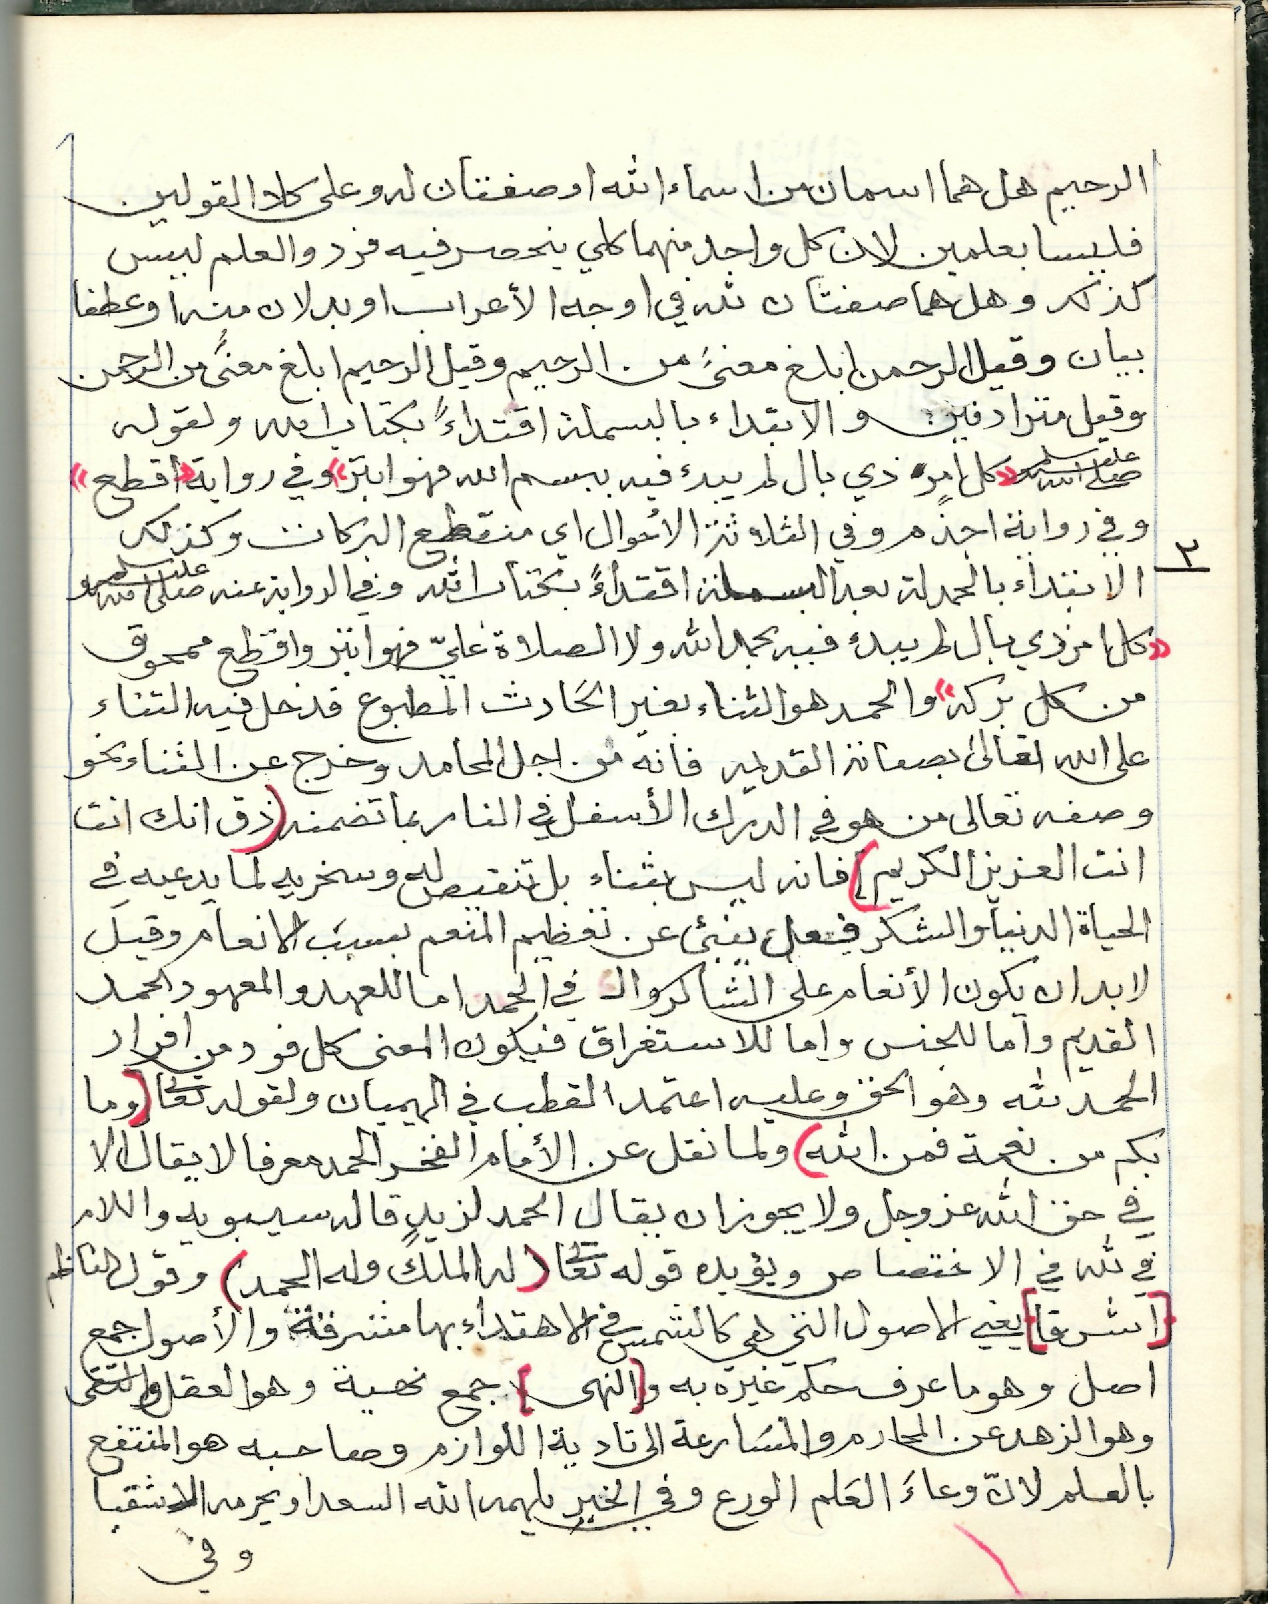 الرحيم هل هما اسمان من اسماء الله او صفتان له وعلى كلا القولين
فليسا بعلمين لان كل واحد منهما كلي ينحصر فيه فرد والعلم ليس
كذلك وهل هما صفتان لله في اوجه الأعراب او بدلان منه او عطفا
بيان وقيل الرحمن ابلغ معنىً من الرحيم وقيل الرحيم ابلغ معنىً من الرحمن
وقيل مترادفين والابتداء بالبسملة اقتداءً بكتاب الله ولقوله
صلى الله عليه وسلم «كل امرٍ ذي بال لم يبدء فيه ببسم الله فهو ابتر» وفي رواية «اقطع»
وفي رواية اجذم وفي الثلاثة الأحوال اي منقطع البركات وكذلك
٢
الابتداء بالحمدلة بعد البسملة اقتداءً بكتاب الله وفي الرواية عنه صلى الله عليه وسلم
«كل امر ذي بال لم يبدء فيه بحمد الله ولا الصلاة عليّ فهو ابتر واقطع ممحوق
من كل بركة» والحمد هو الثناء بغير الحَادث المطبوع فدخل فيه الثناء
على الله تعالى بصفاته القديمه فانه من اجل المحامد وخرج عن الثناء نحو
وصفه تعالى من هو في الدرك الأسفل في النار بما تضمنه (ذق انك انت
انت العزيز الكريم) فانه ليس بثناء بل تنقيص له وسخريه لما يدعيه في
الحياة الدنيا والشكر فعل ينبئ عن تعظيم المنعم بسبب الانعام وقيل
لابد ان يكون الأنعام على الشاكر وال في الحمد اما للعهد والمعهود الحمد
القديم واما للجنس واما للاستغراق فيكون المعنى كل فرد من افراد
الحمد لله وهو الحق وعليه اعتمد القطب في الهميان ولقوله تعالى (وما
بكم من نعمة فمن الله) ولما نقل عن الأمام الفخر الحمد معرفا لا يقال الا
في حق الله عز وجل ولا يجوز ان يقال الحمد لزيدٍ قاله سيبويه واللام
في لله في الاختصاص ويؤيده قوله تعالى (له الملك وله الحمد) وقول الناظم
[اشرقا] يعني الاصول التي هي كالشمس في الاهتداء بها مشرقة والأصول جمع
اصل وهو ما عرف حكم غيره به و[النهى] جمع نهية وهو العقل والتقى
وهو الزهد عن المحارم والمسَارعة الى تادية اللوازم وصاحبه هو المنتفع
بالعلم لانّ وعاءَ العَلم الورع وفي الخبر يلهمه الله السعدا ويحرمه الاشقيا
وفي